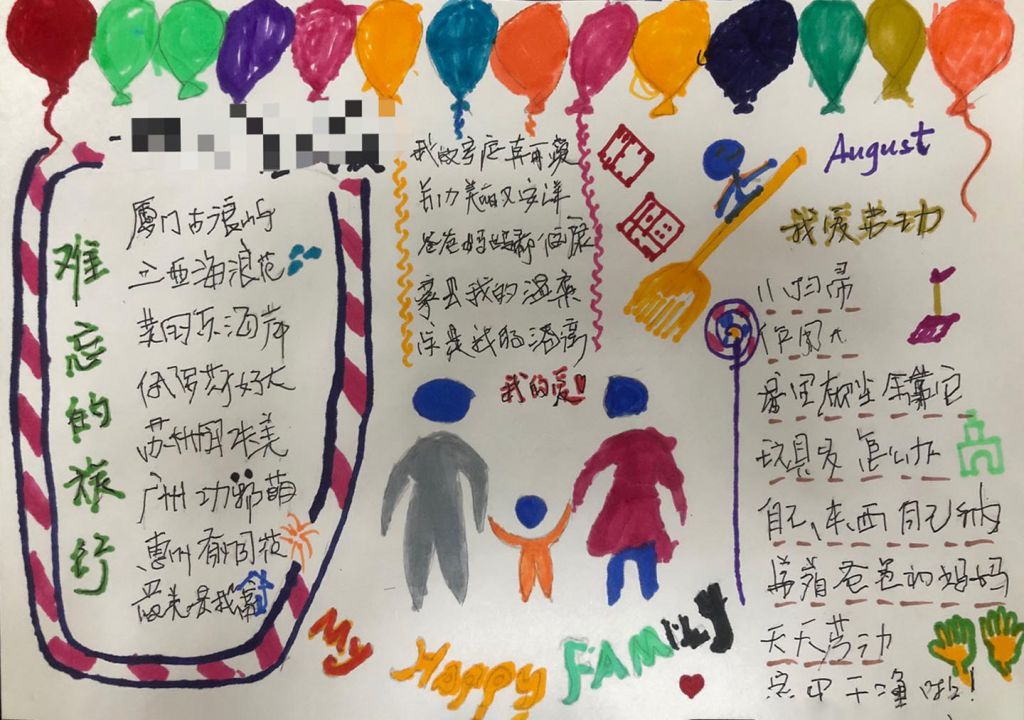 难忘的旅行
厦门古浪屿
三亚海浪花
俄罗斯好大
苏州园林美
广州功郭萌
惠州有烟花
最美是我窝
我的家庭真可爱
美丽又安洋
爸爸妈妈都健康
家是我的温床
总是我的港湾
我的爱
August
我爱劳动
小扫帚
作用大
家里灰尘全靠它
玩具多 怎么办
自己东西自己纳
学着爸爸和妈妈
天天劳动
家中干净啦!
My Happy FAMILY